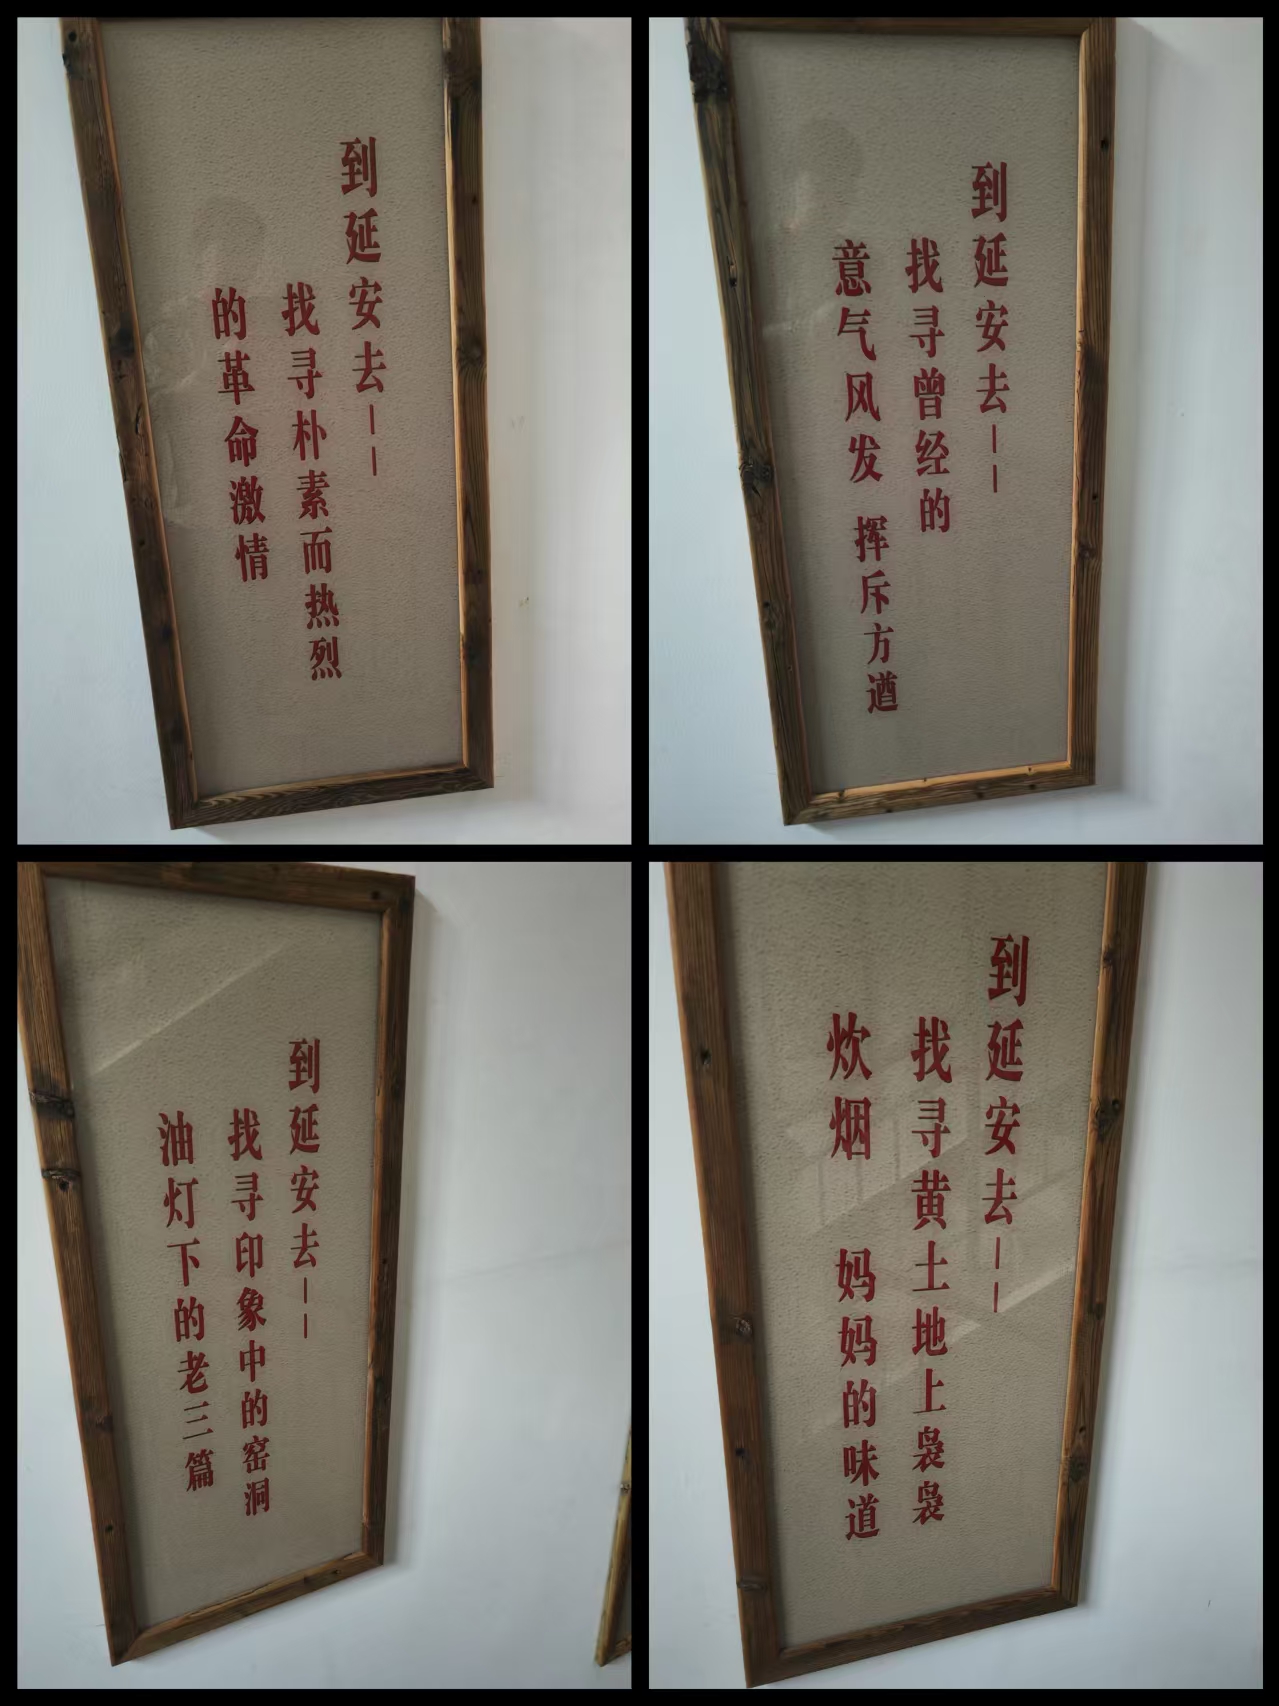 到延安去——
找寻朴素而热烈
的革命激情
到延安去——
找寻曾经的
意气风发 挥斥方遒
到延安去——
找寻印象中的窑洞
油灯下的老三篇
到延安去——
找寻黄土地上袅袅
炊烟 妈妈的味道